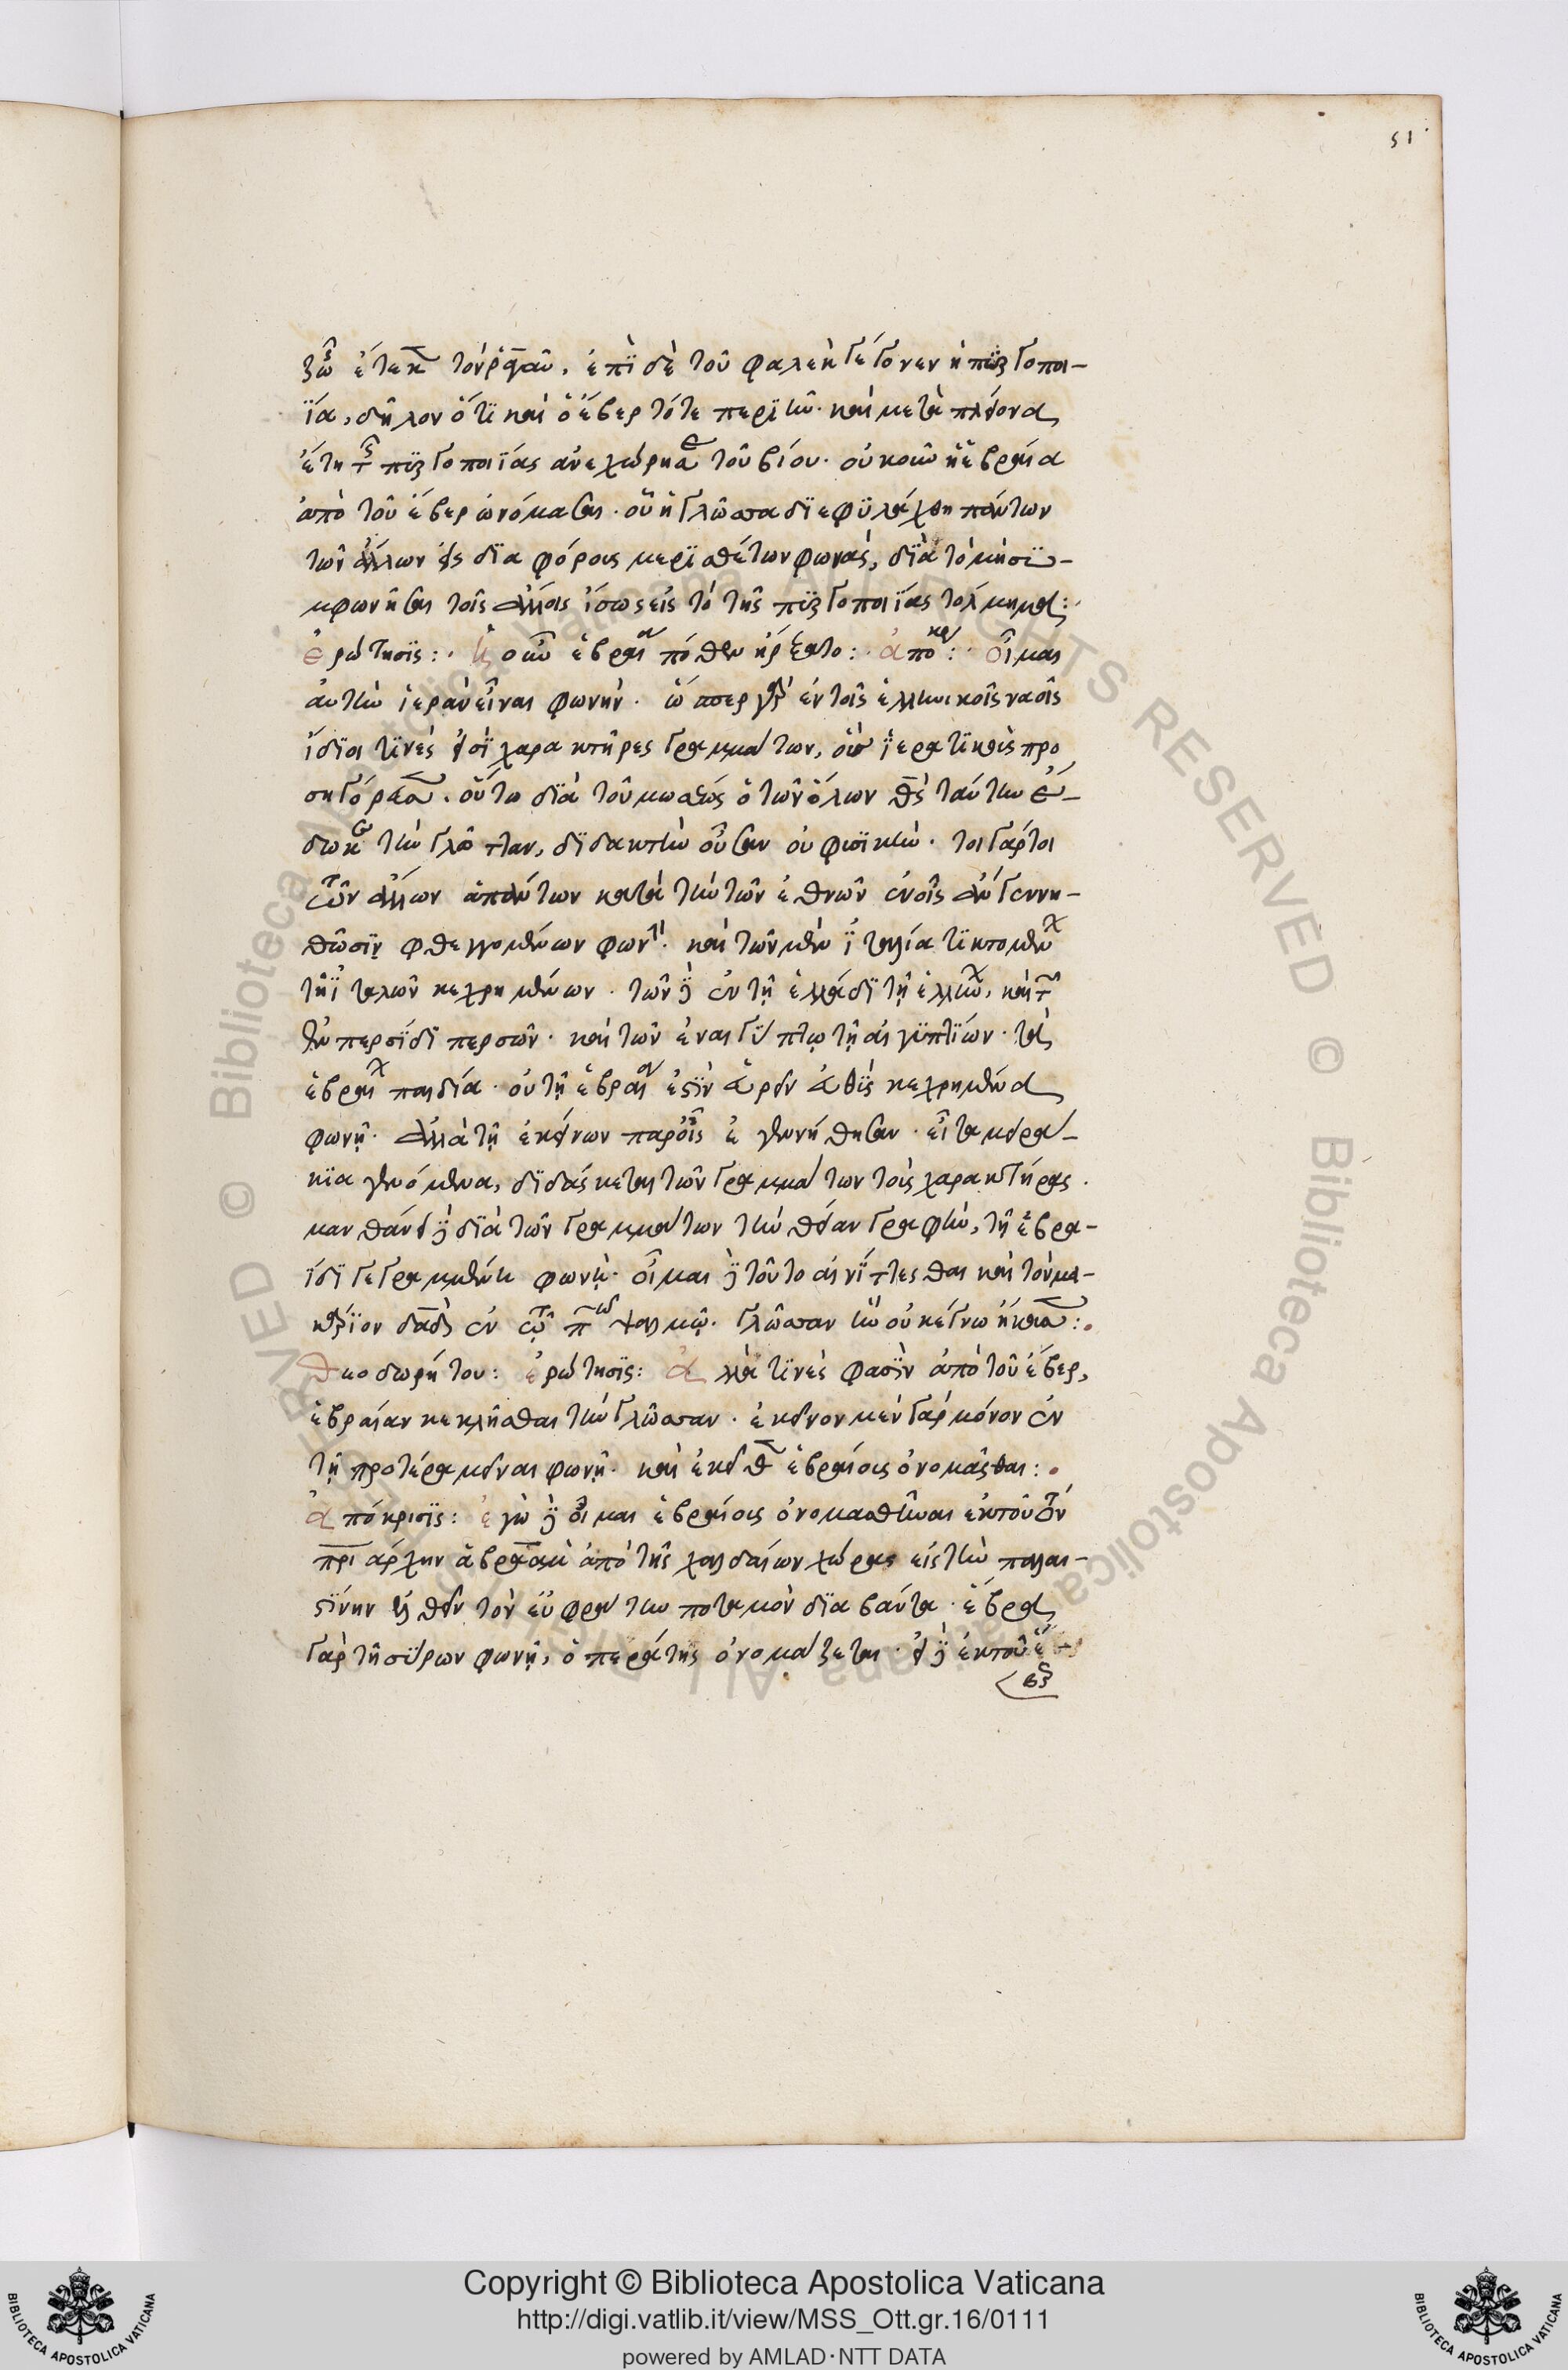 51
ζων ἔτεκε τὸν ῥαγαῦ. ἐπὶ δὲ τοῦ φαλὲκ γέγονεν ἡ πυργοποι-
ΐα, δῆλον ὅτι καὶ ὁ ἔβερ τότε περιῆν. καὶ μετὰ πλείονα
ἔτη τῆς πυργοποιΐας ἀνεχώρησε τοῦ βίου. οὐκοῦν ἡ ἑβραία
ἀπὸ τοῦ ἔβερ ὠνόμασται. οὗ ἡ γλῶσσα διεφυλάχθη πάντων
τῶν ἄλλων εἰς διαφόρους μερισθέντων φωνάς, διὰ τὸ μὴ συ-
μφωνῆσαι τοῖς ἄλλοις ἴσως εἰς τὸ τῆς πυργοποιΐας τόλμημα:
ἐρώτησις: ἡ οὖν ἑβραία πόθεν ἤρξατο: ἀπόκρ: οἶμαι
αὐτὴν ἱερὰν εἶναι φωνήν. ὥσπερ γὰρ ἐν τοῖς ἑλληνικοῖς ναοῖς
ἴδιοι τινὲς εἰσὶ χαρακτῆρες γραμμάτων, οὓς ἱερατικοὺς προ
σηγόρευσαν. οὕτω διὰ τοῦ μωσέως ὁ τῶν ὅλων θεὸς ταύτην ἔ-
δωκε τὴν γλῶτταν, διδακτὴν οὖσαν οὐ φυσικήν. τοιγάρτοι
τῶν ἄλλων ἁπάντων κατὰ τὴν τῶν ἐθνῶν ἐν οἷς ἂν γεννη-
θῶσιν φθεγγομένων φωνήν. καὶ τῶν μὲν ἰταλία τικτομένων
τῇ ἰταλῶν κεχρημένων. τῶν δὲ ἐν τῇ ἑλλάδι τῇ ἑλλήνων, καὶ τῶν
ἐν περσίδι περσῶν. καὶ τῶν ἐν αἰγύπτω τῇ αἰγυπτίων. τὰ
ἑβραίων παιδία. οὐ τῇ ἑβραία ἐστὶν εὑρεῖν εὐθὺς κεχρημένα
φωνῇ. ἀλλὰ τῇ ἐκείνων παρ' οἷς ἐγεννήθησαν. εἶτα μειρά-
κια γενόμενα, διδάσκεται τῶν γραμμάτων τοὺς χαρακτήρας.
μανθάνει δὲ διὰ τῶν γραμμάτων τὴν θείαν γραφήν, τῇ ἑβρα-
ΐδι γεγραμμένην φωνῇ. οἶμαι δὲ τοῦτο αἰνίττεσθαι καὶ τὸν μα-
κάριον δαδ ἐν τῷ π ψαλμῷ. γλῶσσαν ἣν οὐκ ἔγνω ἤκουσεν:
Θεοδωρήτου: ἐρώτησις: ἀλλὰ τινὲς φασὶν ἀπὸ τοῦ ἔβερ,
ἑβραίαν κεκλῆσθαι τὴν γλῶσσαν. ἐκεῖνον μὲν γὰρ μόνον ἐν
τῇ προτέρα μεῖναι φωνῇ. καὶ ἐκεῖθεν ἑβραίους ὀνομάσθαι:
ἀπόκρισις: ἐγὼ δὲ οἶμαι ἑβραίους ὀνομασθῆναι ἐκ τοῦ τὸν
πριάρχην ἀβραὰμ ἀπὸ τῆς χαλδαίων χώρας εἰς τὴν παλαι-
στίνην ἐλθεῖν τὸν εὐφράτην ποταμὸν διαβάντα. ἕβρα
γὰρ τῇ σύρων φωνῇ, ὁ περάτης ὀνομάζεται. εἰ δὲ ἐκ τοῦ ἔ-
βερ
Copyright © Biblioteca Apostolica Vaticana
http://digi.vatlib.it/view/MSS_Ott.gr.16/0111
powered by AMLAD·NTT DATA